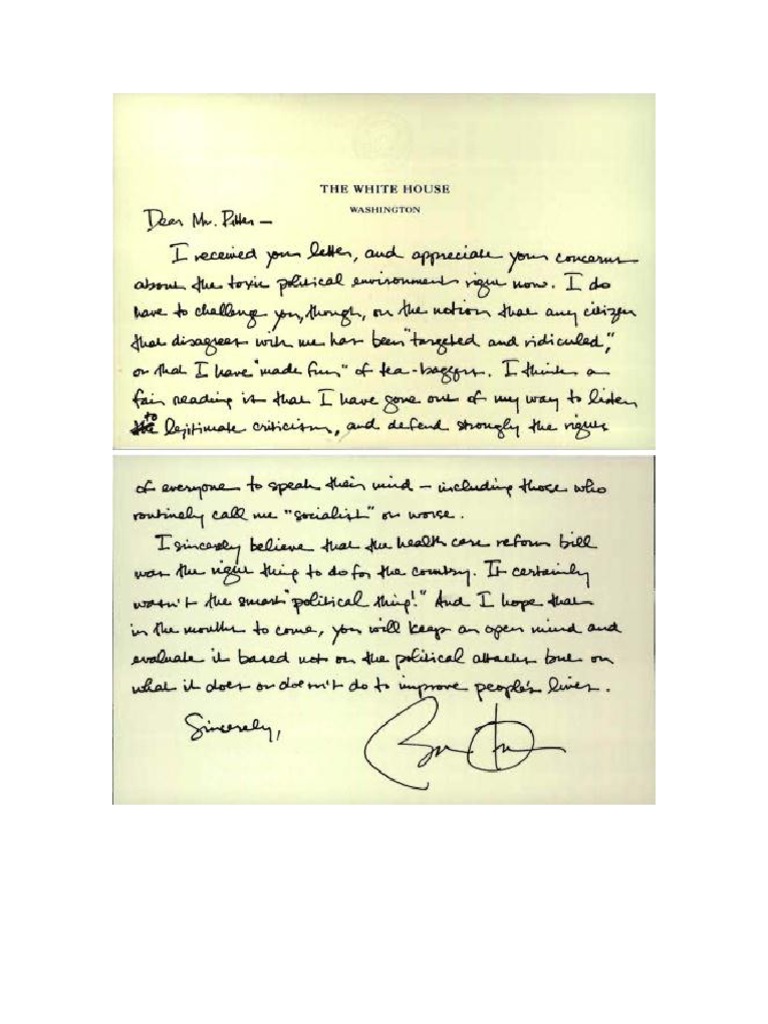 THE WHITE HOUSE
WASHINGTON
Dear Mr. Ritter —
I received your letter, and appreciate your concerns
about the toxic political environment right now. I do
have to challenge you, though, on the notion that any citizen
that disagrees with me has been "targeted and ridiculed,"
or that I have "made fun" of tea-baggers. I think a
fair reading is that I have gone out of my way to listen
to legitimate criticism, and defend strongly the rights
of everyone to speak their mind – including those who
routinely call me "socialist" or worse.
I sincerely believe that the health care reform bill
was the right thing to do for the country. It certainly
wasn't the smart "political thing!" And I hope that
in the months to come, you will keep an open mind and
evaluate it based not on the political attacks but on
what it does or doesn't do to improve people's lives.
Sincerely,